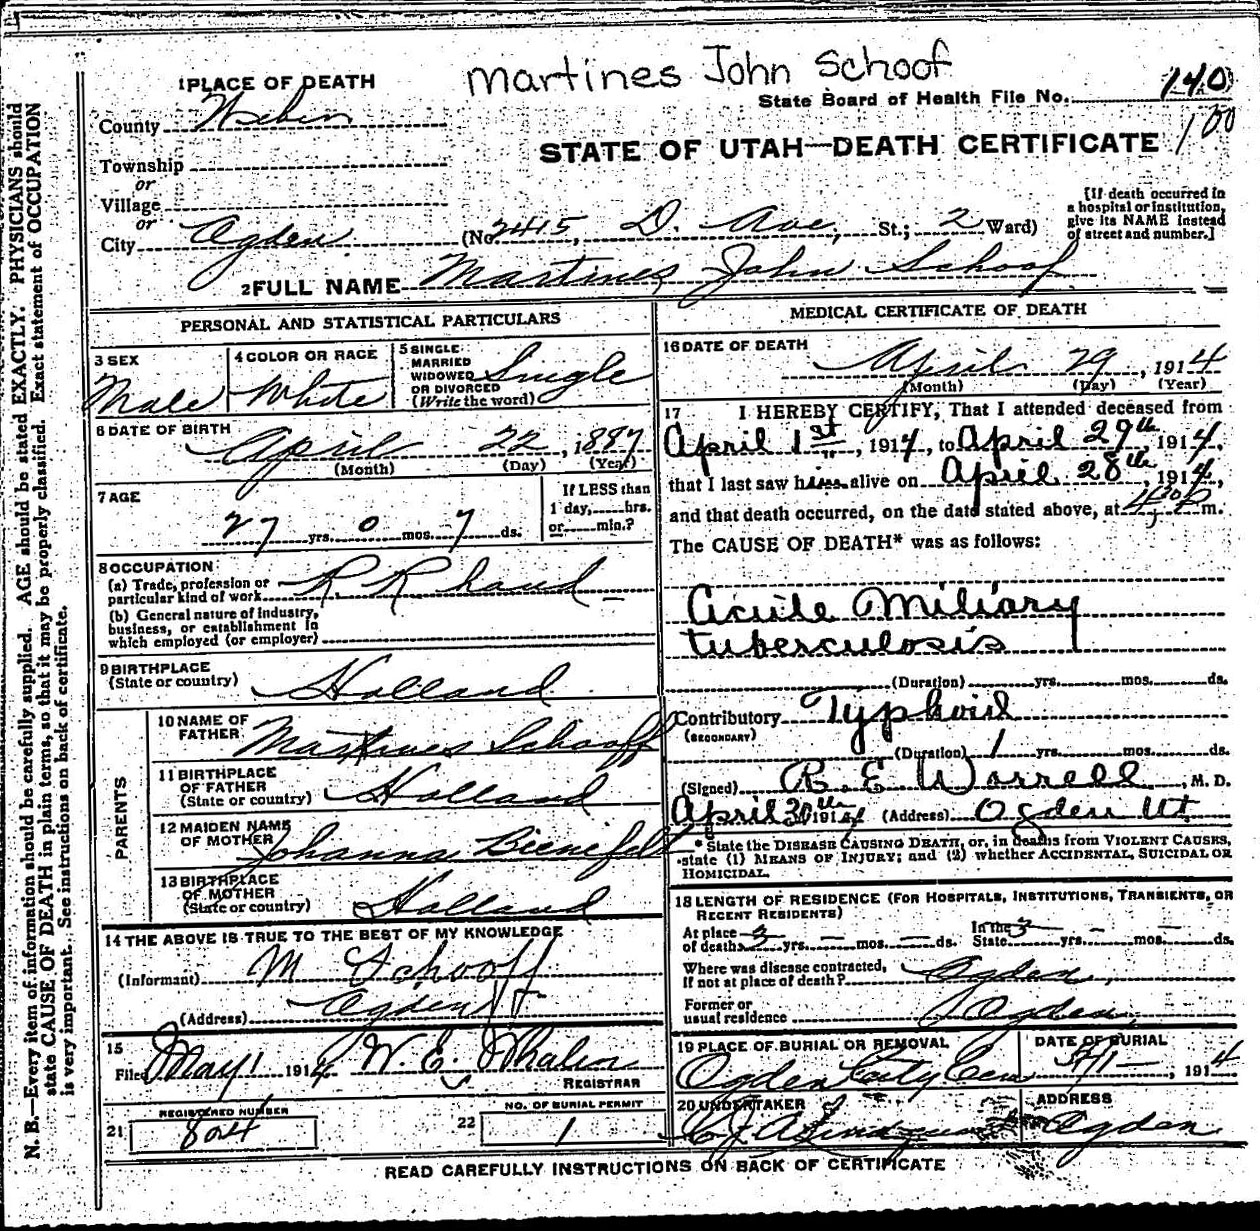 Martines John Schoof
1 PLACE OF DEATH
State Board of Health File No. 140
County Weber
100
STATE OF UTAH—DEATH CERTIFICATE
Township
or
Village
or
City Ogden (No. 2415, D. Ave, St.; 2 Ward)
[If death occurred in a hospital or institution, give its NAME instead of street and number.]
2 FULL NAME Martines John Schoof
PERSONAL AND STATISTICAL PARTICULARS
3 SEX
Male
4 COLOR OR RACE
White
5 SINGLE
MARRIED
WIDOWED
OR DIVORCED
(Write the word)
Single
6 DATE OF BIRTH
April 22, 1887
(Month) (Day) (Year)
7 AGE
27 yrs. 0 mos. 7 ds.
If LESS than
1 day, hrs.
or min.?
8 OCCUPATION
(a) Trade, profession or
particular kind of work R. R hand
(b) General nature of industry,
business, or establishment in
which employed (or employer)
9 BIRTHPLACE
(State or country) Holland
PARENTS
10 NAME OF
FATHER Martines Schooff
11 BIRTHPLACE
OF FATHER
(State or country) Holland
12 MAIDEN NAME
OF MOTHER Johanna Bienefelt
13 BIRTHPLACE
OF MOTHER
(State or country) Holland
14 THE ABOVE IS TRUE TO THE BEST OF MY KNOWLEDGE
(Informant) M Schooff
(Address) Ogden
15
Filed May 1 1914 W. E. Whalen
REGISTRAR
21 REGISTERED NUMBER
804
22 NO. OF BURIAL PERMIT
1
MEDICAL CERTIFICATE OF DEATH
16 DATE OF DEATH
April 29, 1914
(Month) (Day) (Year)
17 I HEREBY CERTIFY, That I attended deceased from
April 1st, 1914, to April 29th 1914,
that I last saw him alive on April 28th, 1914,
and that death occurred, on the date stated above, at 430 P m.
The CAUSE OF DEATH* was as follows:
Acute Miliary
tuberculosis
(Duration) yrs. mos. ds.
Contributory Typhoid
(SECONDARY)
(Duration) 1 yrs. mos. ds.
(Signed) R. E Worrell, M. D.
April 30th 1914 (Address) Ogden Ut.
* State the DISEASE CAUSING DEATH, or, in deaths from VIOLENT CAUSES,
state (1) MEANS OF INJURY; and (2) whether ACCIDENTAL, SUICIDAL OR
HOMICIDAL.
18 LENGTH OF RESIDENCE (FOR HOSPITALS, INSTITUTIONS, TRANSIENTS, OR
RECENT RESIDENTS)
At place
of death 3 yrs. — mos. — ds. In the
State 3 yrs. — mos. — ds.
Where was disease contracted,
if not at place of death? Ogden,
Former or
usual residence Ogden,
19 PLACE OF BURIAL OR REMOVAL
Ogden City Cem
DATE OF BURIAL
5/1 —, 1914
20 UNDERTAKER
ADDRESS
Ogden
READ CAREFULLY INSTRUCTIONS ON BACK OF CERTIFICATE
N. B.—Every item of information should be carefully supplied. AGE should be stated EXACTLY. PHYSICIANS should
state CAUSE OF DEATH in plain terms, so that it may be properly classified. Exact statement of OCCUPATION
is very important. See instructions on back of certificate.